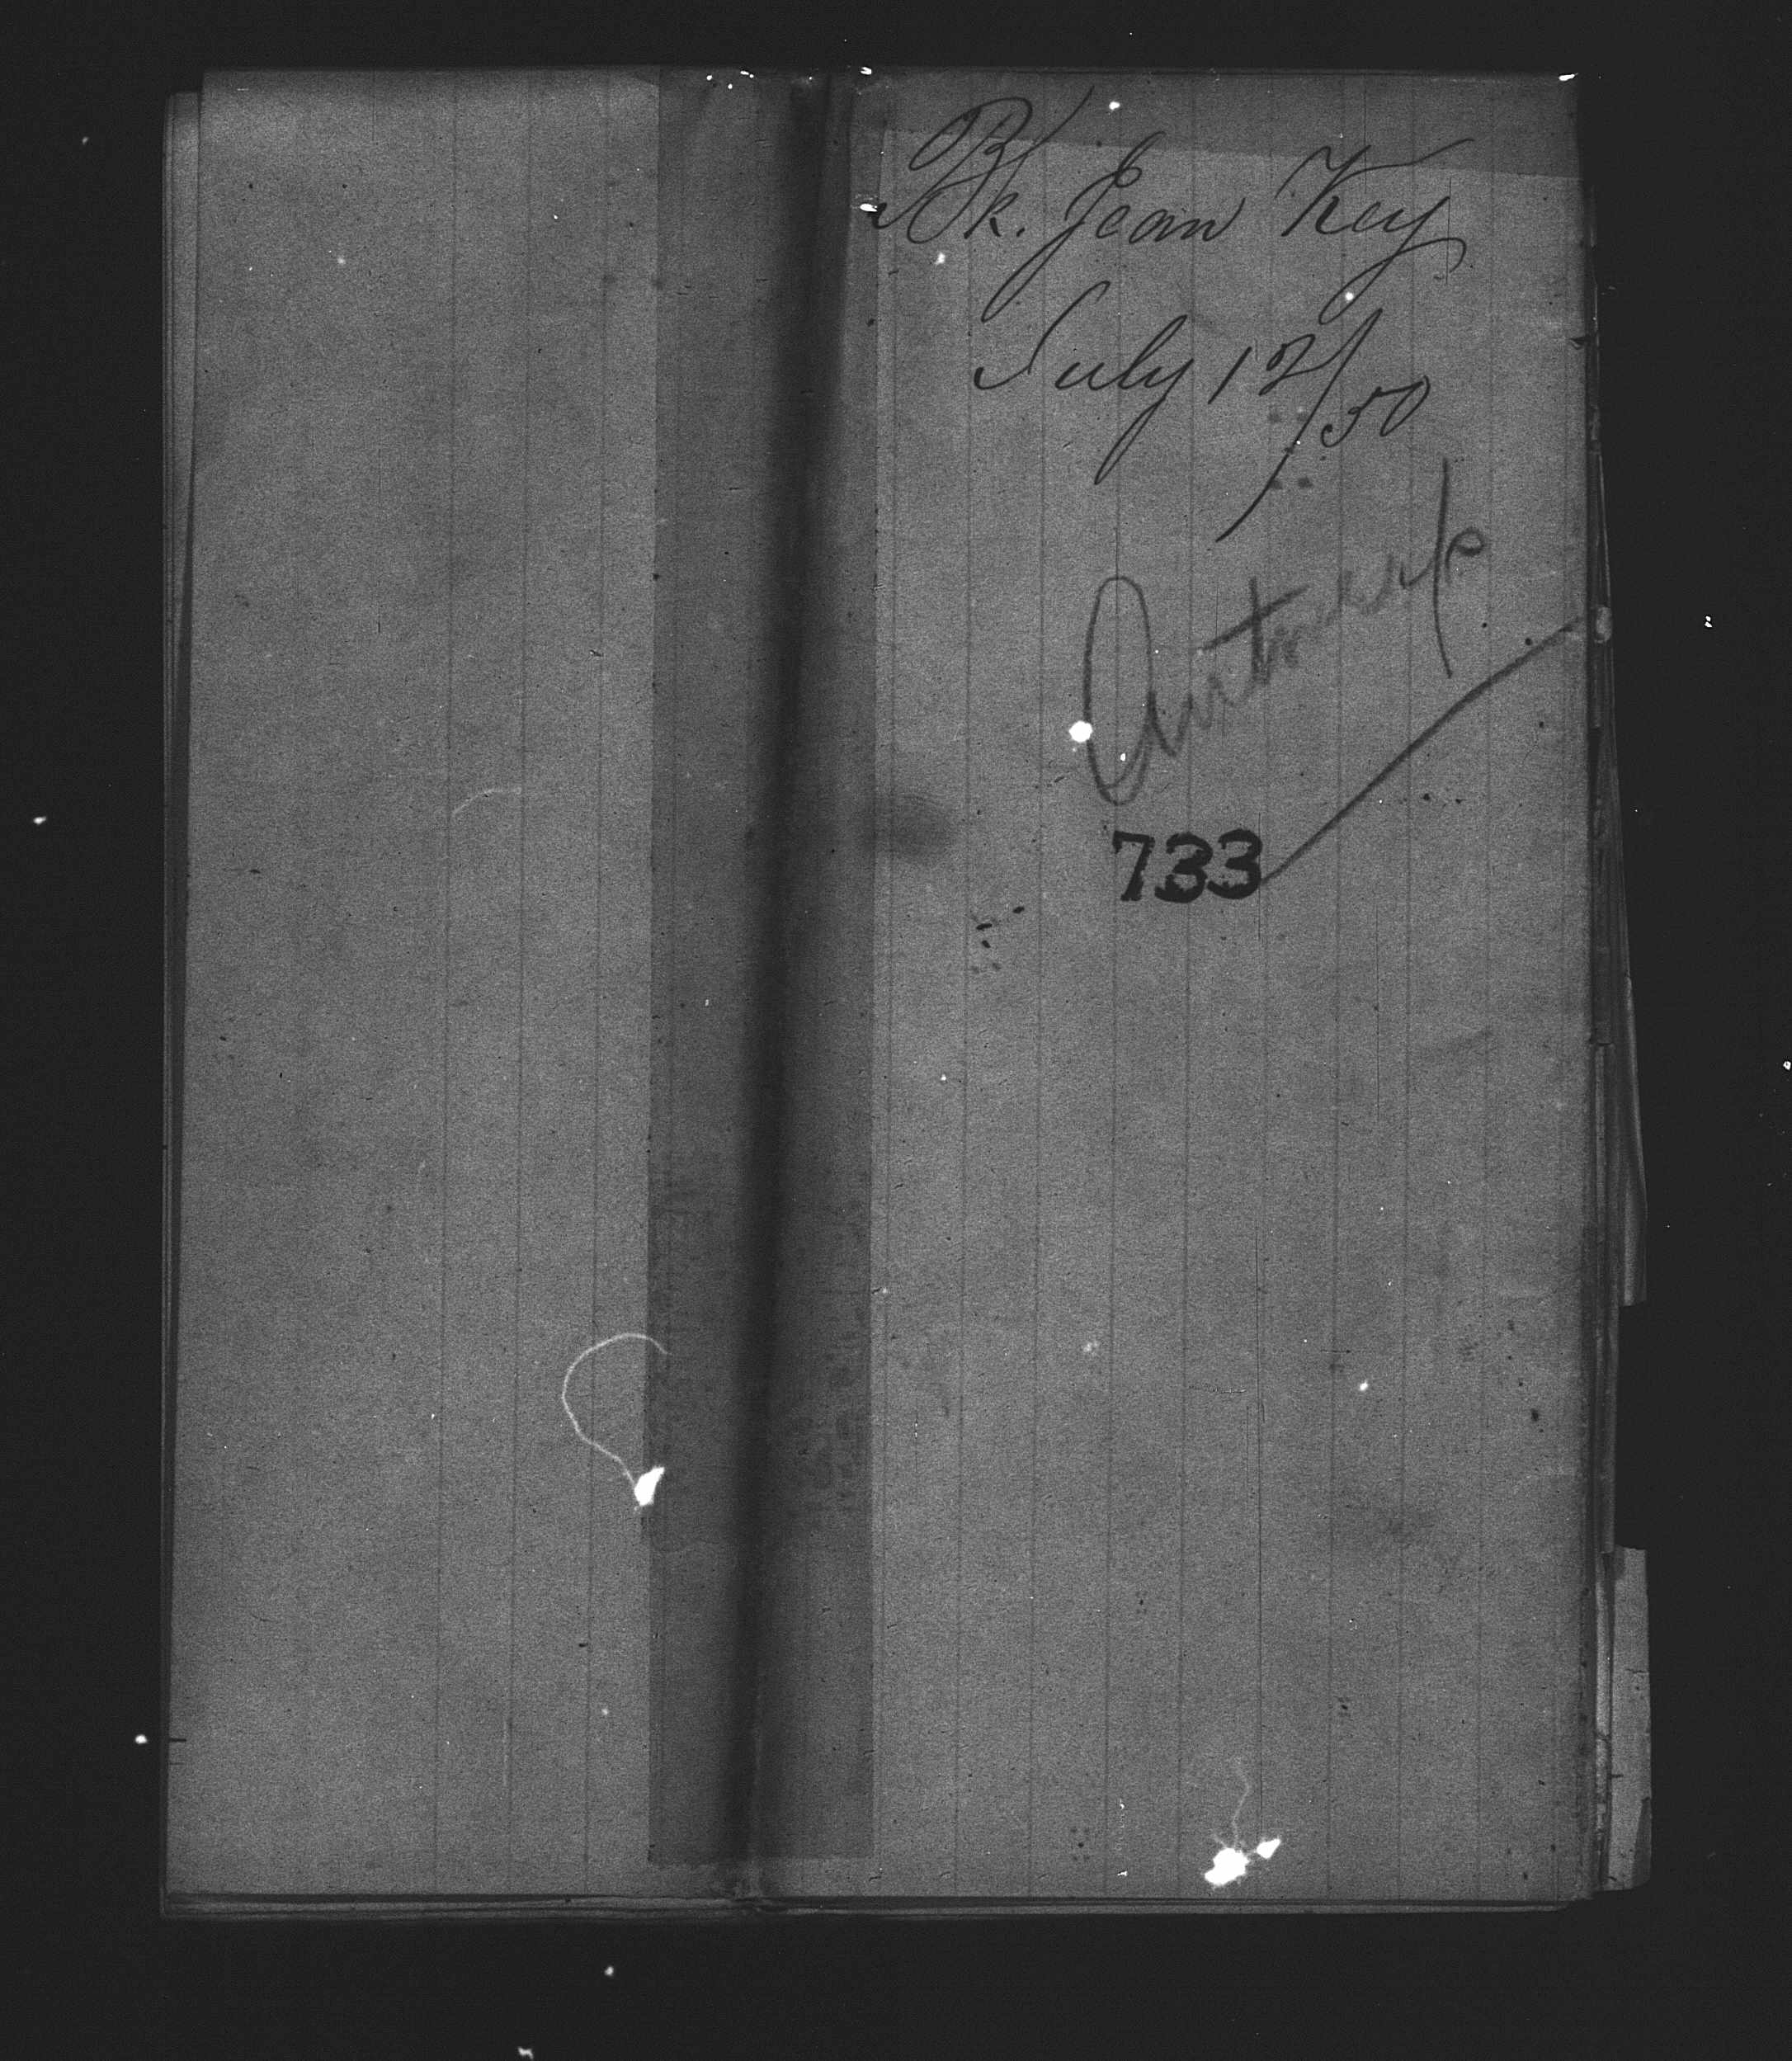 Bk. Jean Key
July 12/50
Antwerp
733